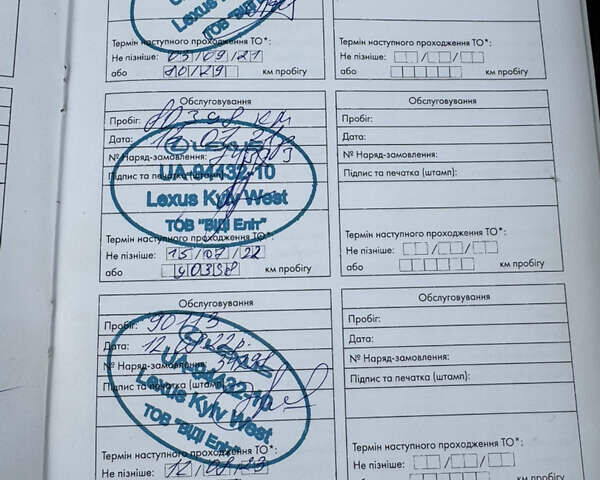 Lexus Kyiv West
ТОВ "ВІДІ
Термін наступного проходження ТО*:
Не пізніше: 03/09/21
або км пробігу
Термін наступного проходження ТО*:
Не пізніше: / /
або км пробігу
Обслуговування
Пробіг: км
Дата:
№ Наряд-замовлення:
Підпис та печатка (штамп):
LEXUS
UA 04432-10
Lexus Kyiv West
ТОВ "ВІДІ Еліт"
Термін наступного проходження ТО*:
Не пізніше: 15/07/22
або 90398 км пробігу
Обслуговування
Пробіг:
Дата:
№ Наряд-замовлення:
Підпис та печатка (штамп):
Термін наступного проходження ТО*:
Не пізніше: / /
або км пробігу
Обслуговування
Пробіг: 90113
Дата:
№ Наряд-замовлення:
Підпис та печатка (штамп):
UA 04432-10
Lexus Kyiv West
ТОВ "ВІДІ Еліт"
Термін наступного проходження ТО*:
Не пізніше: 12/08/23
Обслуговування
Пробіг:
Дата:
№ Наряд-замовлення:
Підпис та печатка (штамп):
Термін наступного проходження ТО*:
Не пізніше: / /
або км пробігу